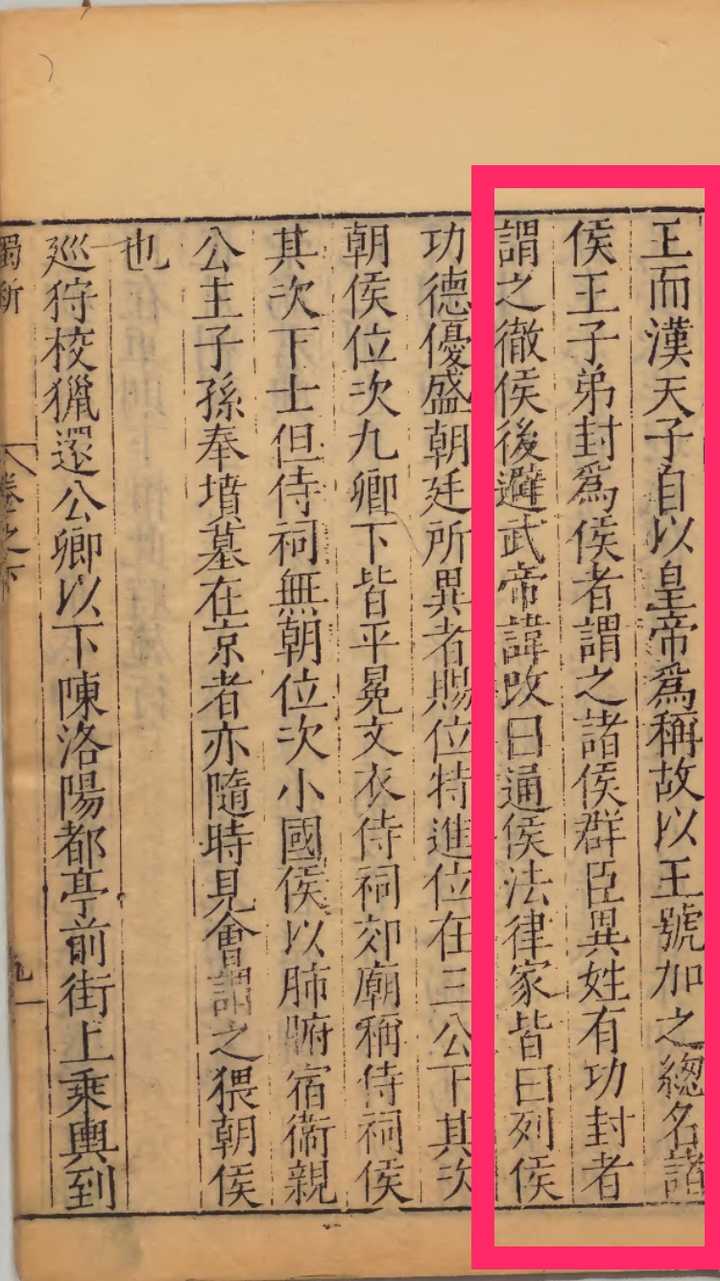 王而漢天子自以皇帝爲稱故以王號加之緫名諸
侯王子弟封爲侯者謂之諸侯群臣異姓有功封者
謂之徹侯後避武帝諱改曰通侯法律家皆曰列侯
功德優盛朝廷所異者賜位特進位在三公下其次
朝侯位次九卿下皆平冕文衣侍祠郊廟稱侍祠侯
其次下士但侍祠無朝位次小國侯以肺腑宿衞親
公主子孫奉墳墓在京者亦隨時見會謂之猥朝侯
也
廵狩校獵還公卿以下陳洛陽都亭前街上乘輿到
獨斷 卷之下 九